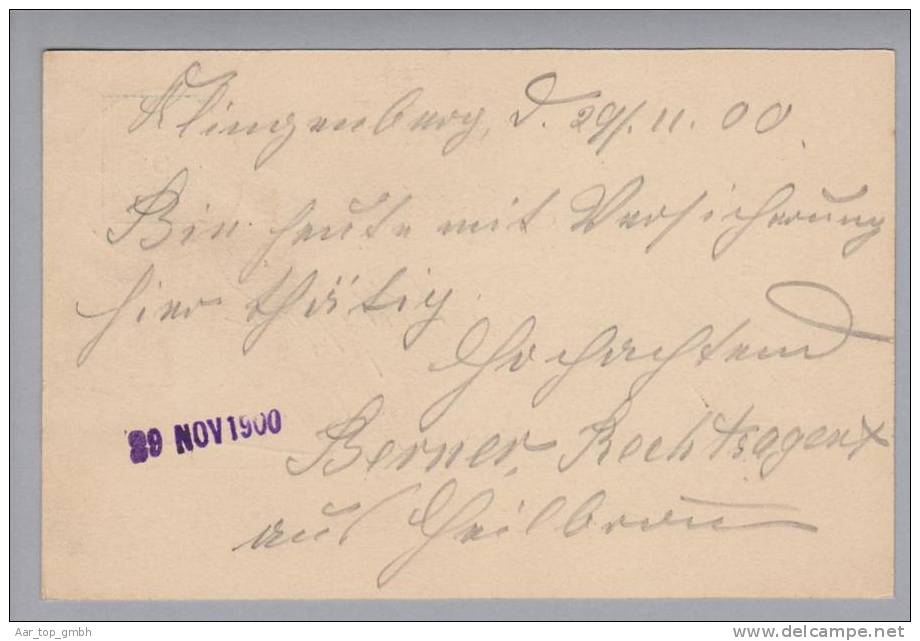 Klingenberg, d. 29/. 11. 00.
Bin heute mit Versicherung
hier thätig.
Hochachtend
29 NOV 1900
Berner, Rechtsagent
aus Heilbronn
Aar_top_gmbh
www.delcampe.net